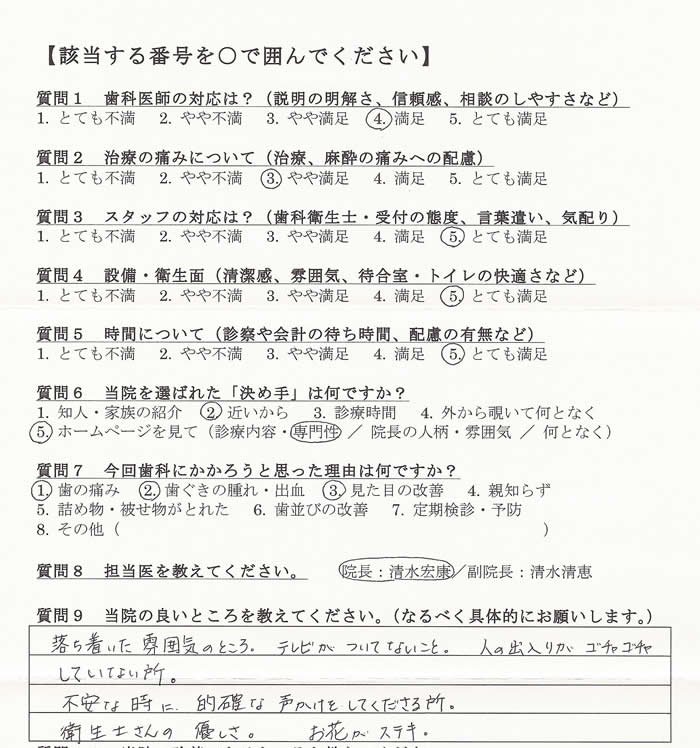 【該当する番号を○で囲んでください】
質問1 歯科医師の対応は？（説明の明解さ、信頼感、相談のしやすさなど）
1. とても不満 2. やや不満 3. やや満足 4. 満足 5. とても満足
質問2 治療の痛みについて（治療、麻酔の痛みへの配慮）
1. とても不満 2. やや不満 3. やや満足 4. 満足 5. とても満足
質問3 スタッフの対応は？（歯科衛生士・受付の態度、言葉遣い、気配り）
1. とても不満 2. やや不満 3. やや満足 4. 満足 5. とても満足
質問4 設備・衛生面（清潔感、雰囲気、待合室・トイレの快適さなど）
1. とても不満 2. やや不満 3. やや満足 4. 満足 5. とても満足
質問5 時間について（診察や会計の待ち時間、配慮の有無など）
1. とても不満 2. やや不満 3. やや満足 4. 満足 5. とても満足
質問6 当院を選ばれた「決め手」は何ですか？
1. 知人・家族の紹介 2. 近いから 3. 診療時間 4. 外から覗いて何となく
5. ホームページを見て（診療内容・専門性 ／ 院長の人柄・雰囲気 ／ 何となく）
質問7 今回歯科にかかろうと思った理由は何ですか？
1. 歯の痛み 2. 歯ぐきの腫れ・出血 3. 見た目の改善 4. 親知らず
5. 詰め物・被せ物がとれた 6. 歯並びの改善 7. 定期検診・予防
8. その他（ ）
質問8 担当医を教えてください。 院長：清水宏康／副院長：清水清恵
質問9 当院の良いところを教えてください。（なるべく具体的にお願いします。）
落ち着いた雰囲気のところ。 テレビがついてないこと。 人の出入りがゴチャゴチャ
していない所。
不安な時に、的確な声かけをしてくださる所。
衛生士さんの優しさ。 お花がステキ。